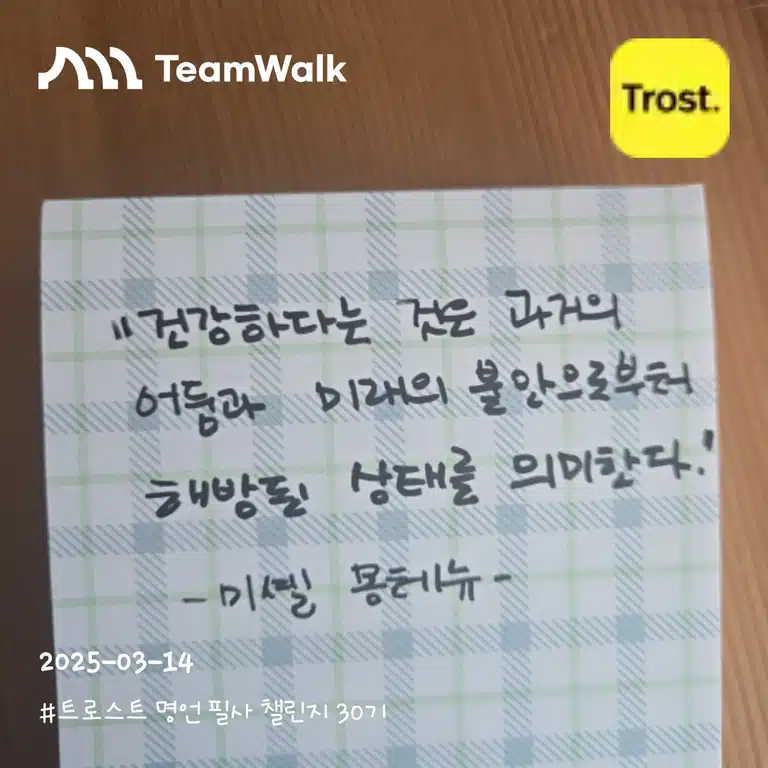 TeamWalk
Trost.
"건강하다는 것은 과거의
어둠과 미래의 불안으로부터
해방될 상태를 의미한다."
- 미셸 몽테뉴 -
2025-03-14
#트로스트 명언 필사 챌린지 30기